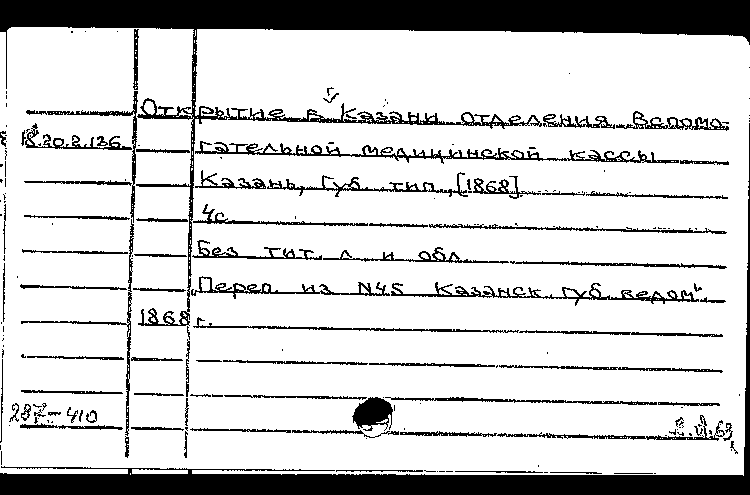 Открытие в Казани отделения Вспомо-
18.20.2.136 гательной медицинской кассы
Казань, Губ. тип., [1868]
4с.
Без тит. л. и обл.
"Переп. из N45 Казанск. губ. ведом".
1868 г.
287-410